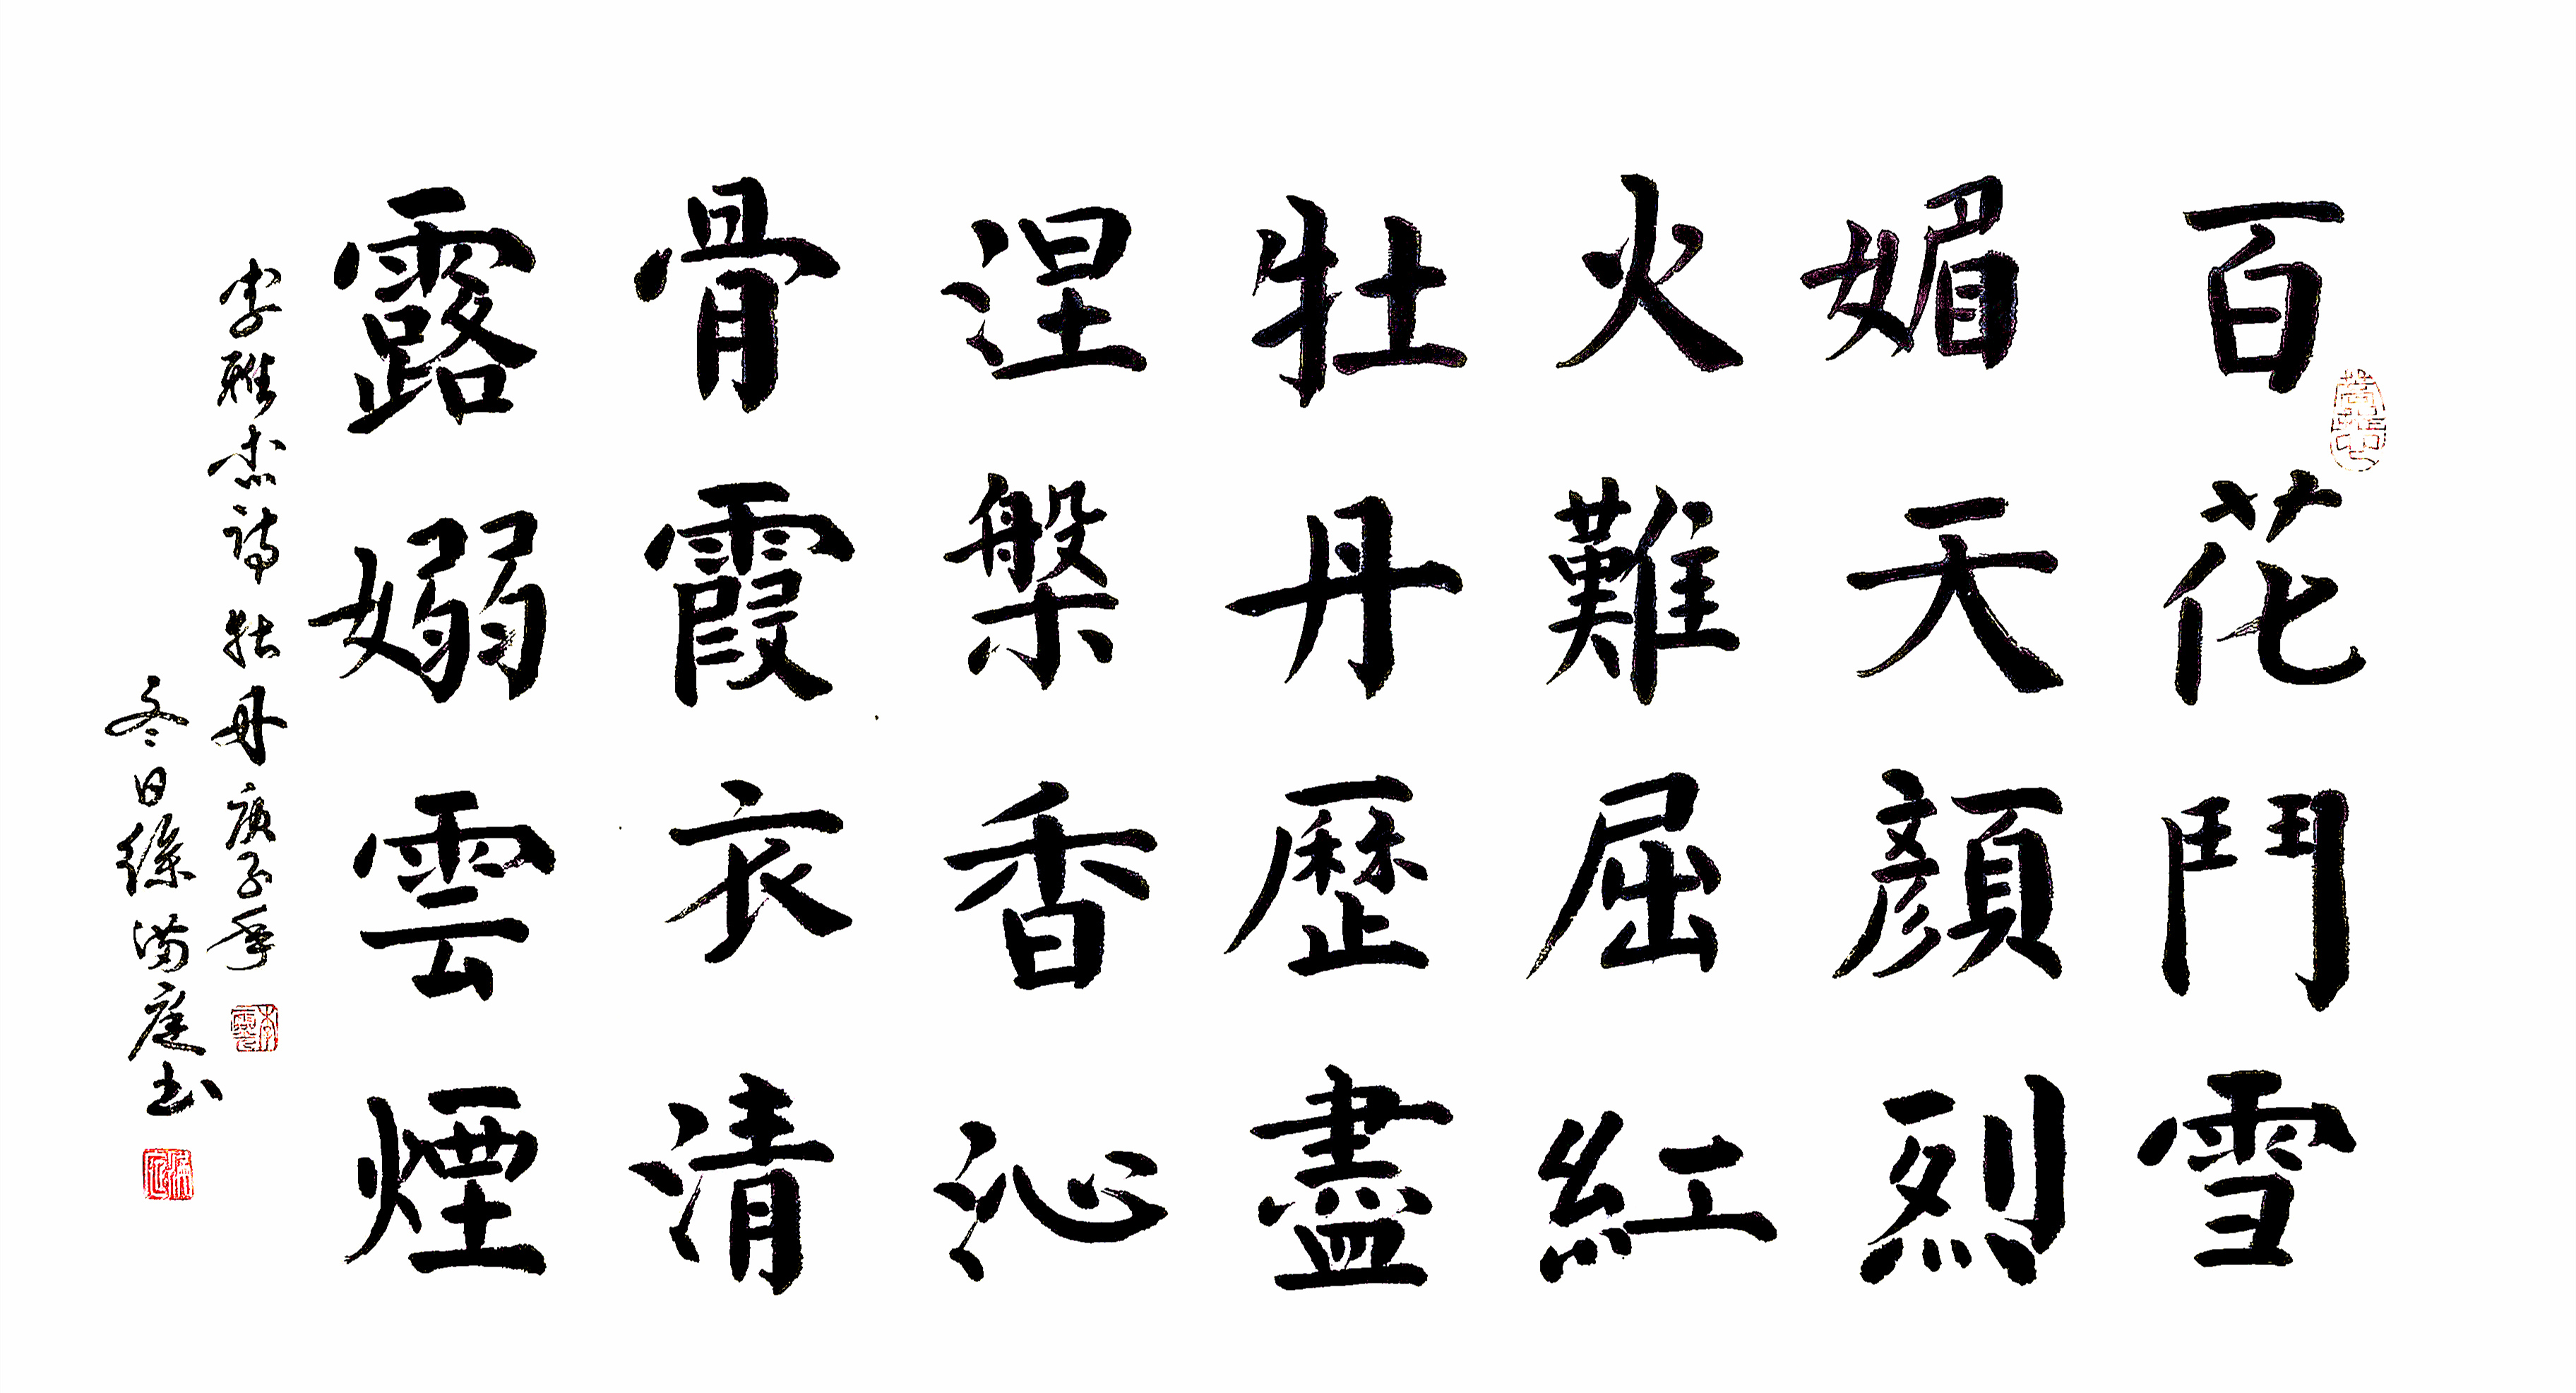 百花鬥雪
媚天顏烈
火難屈紅
牡丹歷盡
涅槃香沁
骨霞衣清
露嫋雲煙
李雅杰詩牡丹庚子年
冬日徐滿庭書